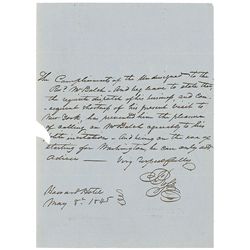 The Compliments of the Undersigned to the
Revd. Mr Balch - And beg leave to state that
the requisite dispatch of his business and con-
sequent shortness of his present visit to
New York, has prevented him the pleasure
of calling on Mr Balch agreeably to his
invitation - And being on the eve of
starting for Washington he can only add
Adieu -
Very respectfully
Howard Hotel
May 8th 1845